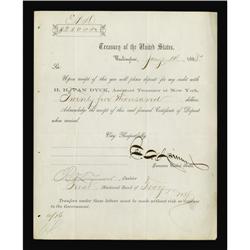 $25000
Treasury of the United States,
Washington, Jany 14 186
Sir:
Upon receipt of this you will please deposit for my credit with
H. H. VAN DYCK, Assistant Treasurer at New York,
Twenty five Thousand dollars.
Acknowledge the receipt of this and forward Certificate of Deposit
when received.
Very Respectfully,
Treasurer United States.
Cashier
First National Bank of Troy
NY
Transfers under these letters must be made without risk or expense
to the Government.